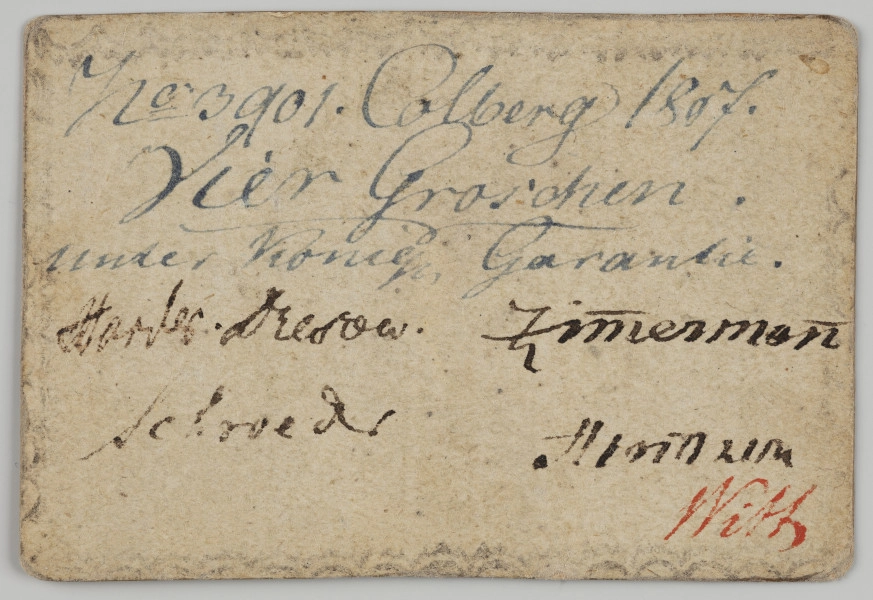 No 3901. Colberg 1807.
Vier Groschen.
unter Königl. Garantie.
Harder. Dresow. Zim̅erman̅
Schroeder
Wilh